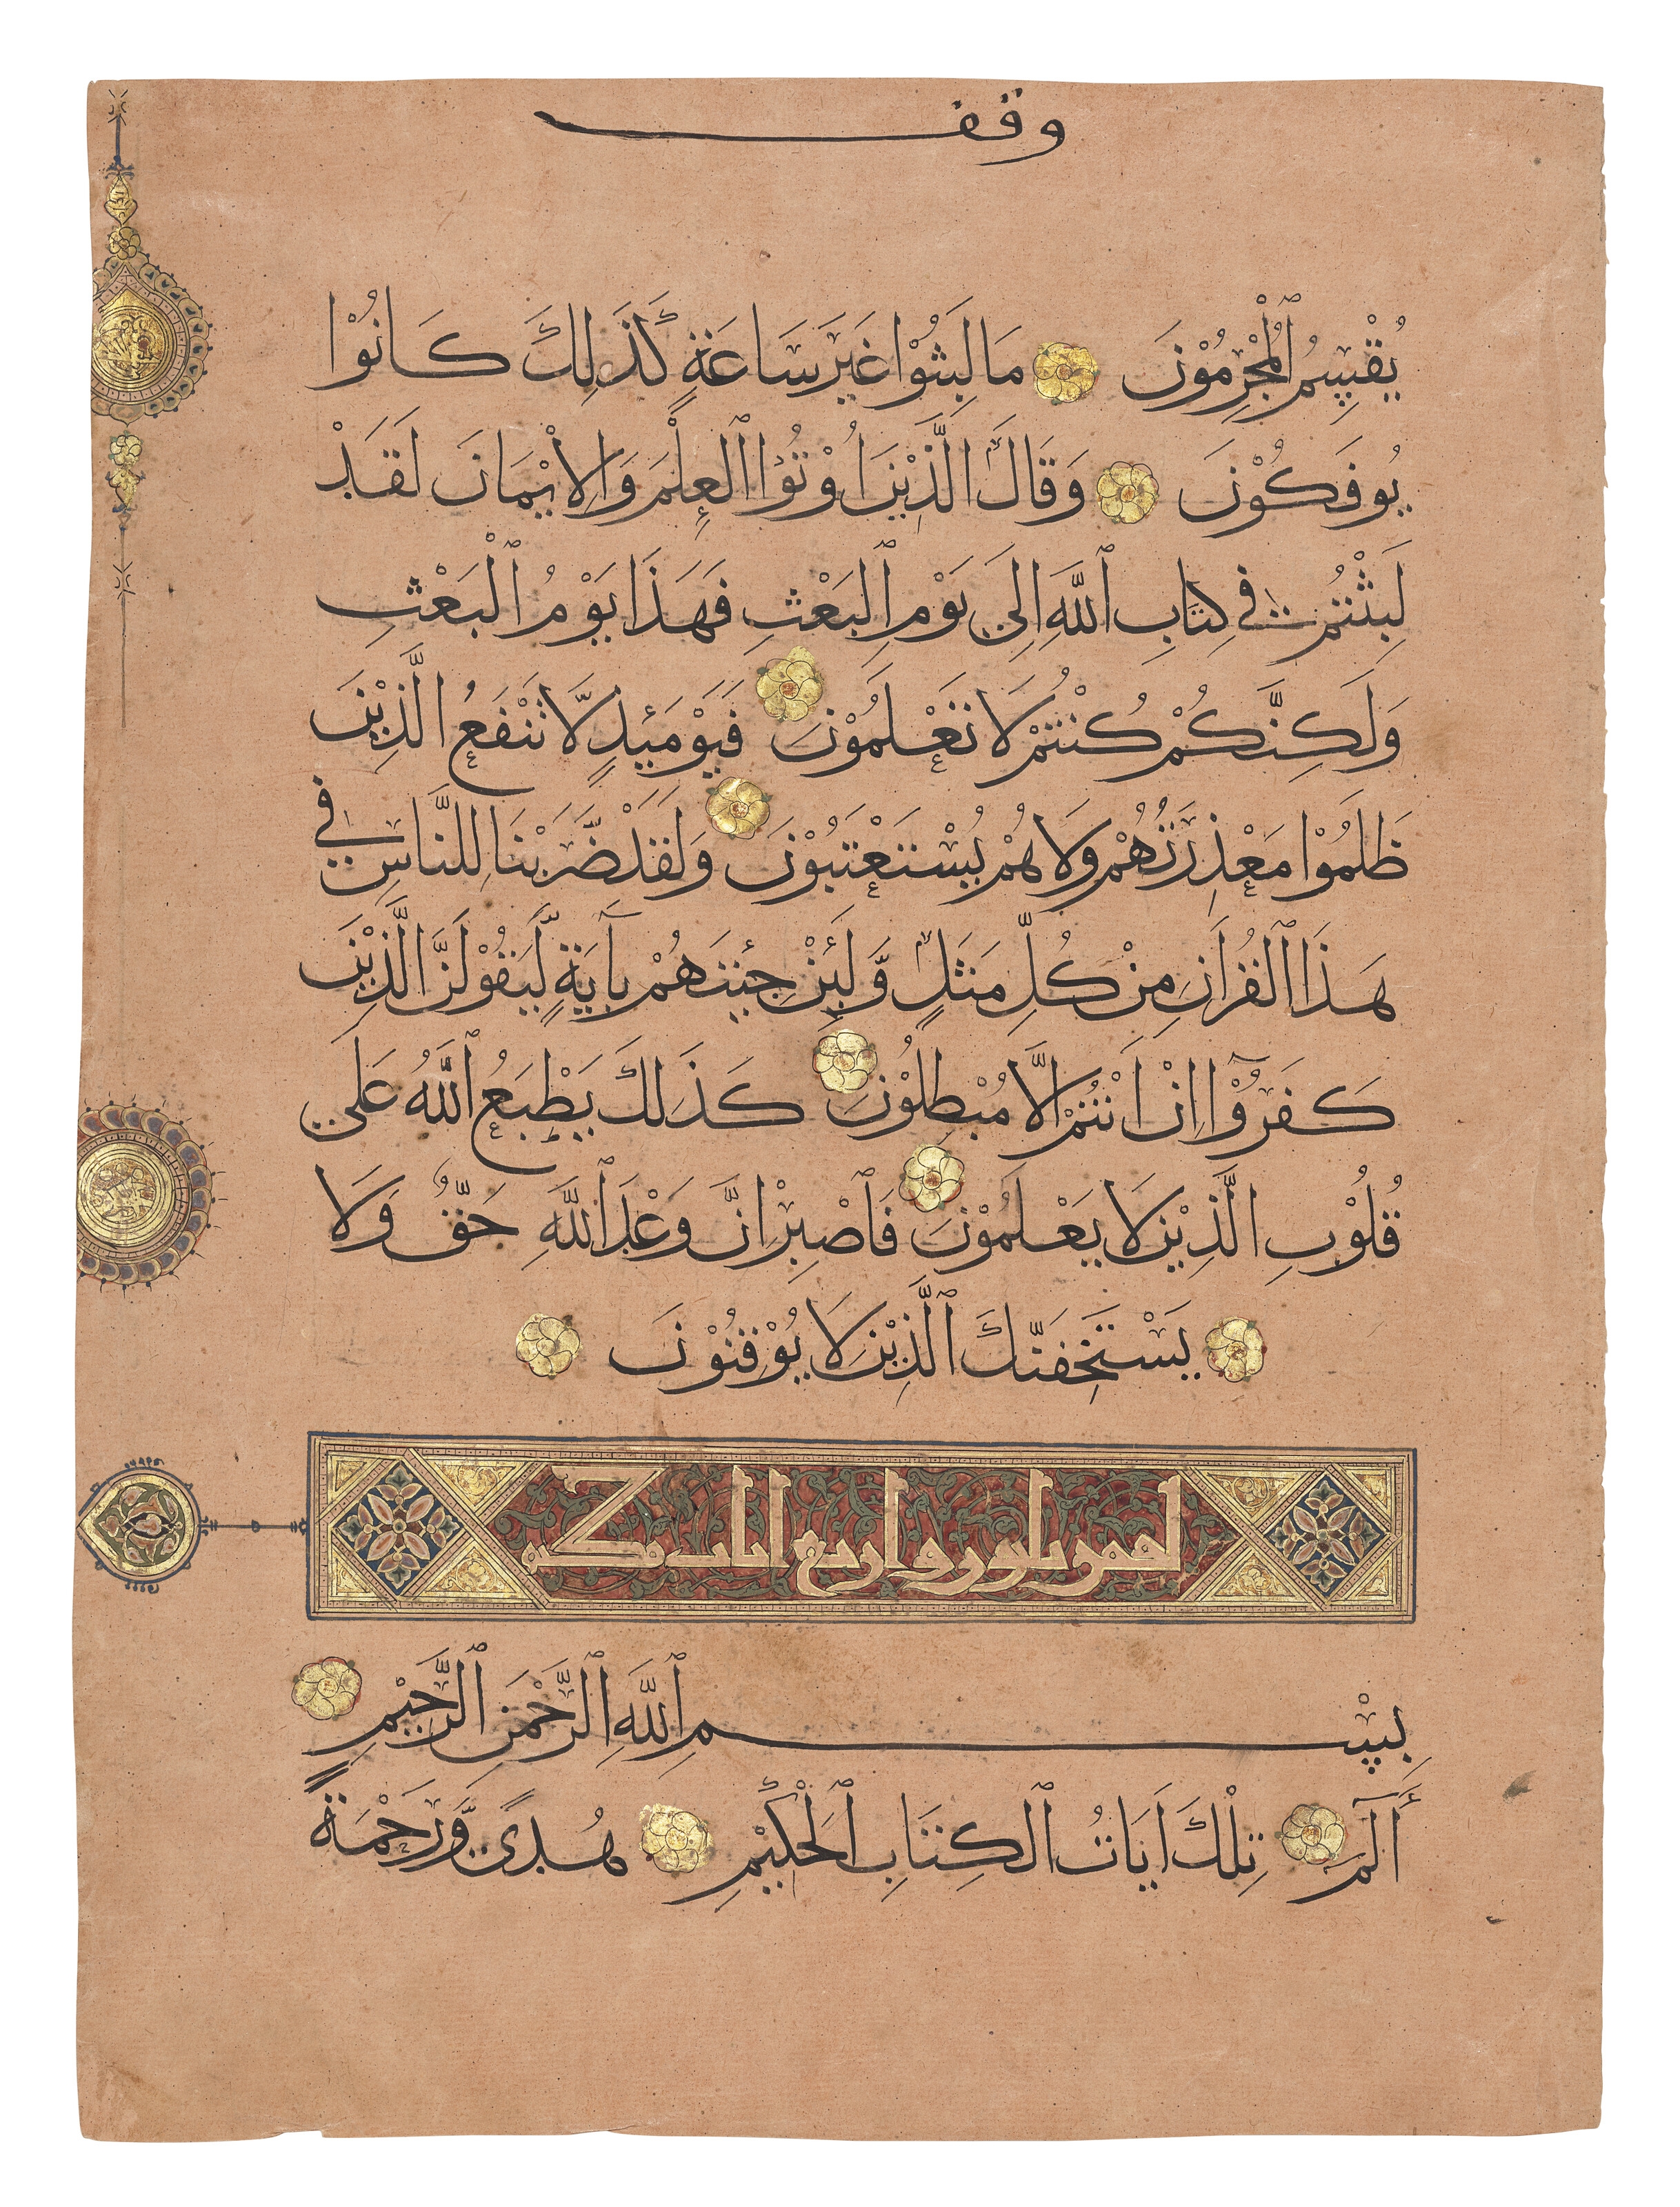 وقف
يُقْسِمُ الْمُجْرِمُوْنَ مَا لَبِثُوْا غَيْرَ سَاعَةٍ كَذَلِكَ كَانُوْا
يُوفَكُوْنَ وَقَالَ الَّذِيْنَ اُوْتُوْا ٱلْعِلْمَ وَالْاِيْمَانَ لَقَدْ
لَبِثْتُمْ فِي كِتَابِ ٱللَّهِ اِلَى يَوْمِ ٱلْبَعْثِ فَهَذَا يَوْمُ ٱلْبَعْثِ
وَلَكِنَّكُمْ كُنْتُمْ لَا تَعْلَمُوْنَ فَيَوْمَئِذٍ لَّا تَنْفَعُ الَّذِيْنَ
ظَلَمُوْا مَعْذِرَتُهُمْ وَلَا هُمْ يُسْتَعْتَبُوْنَ وَلَقَدْ ضَّرَبْنَا لِلنَّاسِ فِي
هَذَا ٱلْقُرْاَنِ مِنْ كُلِّ مَثَلٍ وَّلَئِنْ جِئْتَهُمْ بِآيَةٍ لَّيَقُوْلَنَّ الَّذِيْنَ
كَفَرُوْٓا اِنْ اَنْتُمْ اِلَّا مُبْطِلُوْنَ كَذَلِكَ يَطْبَعُ ٱللَّهُ عَلَى
قُلُوْبِ الَّذِيْنَ لَا يَعْلَمُوْنَ فَٱصْبِرْ اِنَّ وَعْدَ ٱللَّهِ حَقٌّ وَلَا
يَسْتَخِفَّنَّكَ ٱلَّذِيْنَ لَا يُوْقِنُوْنَ
لقمن ثلثون واربع ايات مكيه
بِسْمِ ٱللَّهِ ٱلرَّحْمَنِ ٱلرَّحِيْمِ
الٓمٓ تِلْكَ اَيَاتُ ٱلْكِتَابِ ٱلْحَكِيْمِ هُدًى وَّرَحْمَةً